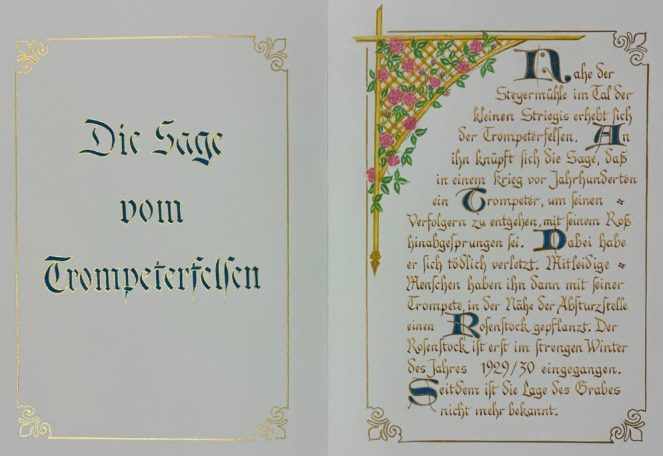 Die Sage
vom
Trompeterfelsen
Nahe der
Steyermühle im Tal der
kleinen Striegis erhebt sich
der Trompeterfelsen. An
ihn knüpft sich die Sage, daß
in einem Krieg vor Jahrhunderten
ein Trompeter, um seinen
Verfolgern zu entgehen, mit seinem Roß
hinabgesprungen sei. Dabei habe
er sich tödlich verletzt. Mitleidige
Menschen haben ihn dann mit seiner
Trompete in der Nähe der Absturzstelle
einen Rosenstock gepflanzt. Der
Rosenstock ist erst im strengen Winter
des Jahres 1929/30 eingegangen.
Seitdem ist die Lage des Grabes
nicht mehr bekannt.